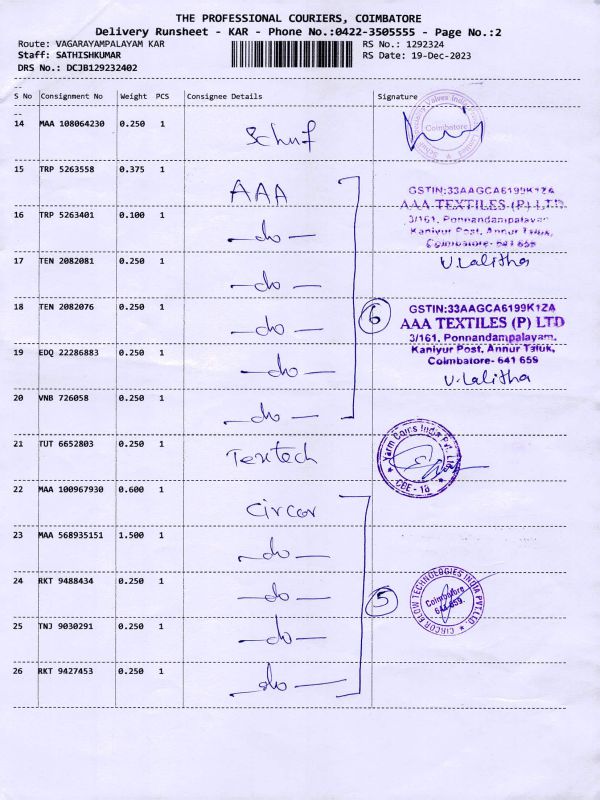 THE PROFESSIONAL COURIERS, COIMBATORE
Delivery Runsheet - KAR - Phone No.:0422-3505555 - Page No.:2
Route: VAGARAYAMPALAYAM KAR
RS No.: 1292324
Staff: SATHISHKUMAR
RS Date: 19-Dec-2023
DRS No.: DCJB129232402
S No Consignment No Weight PCS Consignee Details Signature
14 MAA 108064230 0.250 1 Schuf
Coimbatore
15 TRP 5263558 0.375 1 AAA
GSTIN:33AAGCA6199K1ZA
AAA TEXTILES (P) LTD
3/161, Ponnandampalayam
Kaniyur Post, Annur Taluk,
Coimbatore- 641 659
V. Lalitha
16 TRP 5263401 0.100 1 -do-
17 TEN 2082081 0.250 1 -do-
18 TEN 2082076 0.250 1 -do-
6
GSTIN:33AAGCA6199K1ZA
AAA TEXTILES (P) LTD
3/161, Ponnandampalayam,
Kaniyur Post, Annur Taluk,
Coimbatore- 641 659
V. Lalitha
19 EDQ 22286883 0.250 1 -do-
20 VNB 726058 0.250 1 -do-
21 TUT 6652803 0.250 1 Textech
Yarm Coms India Pvt. Ltd.
CBE - 18
22 MAA 100967930 0.600 1 Circor
23 MAA 568935151 1.500 1 -do-
24 RKT 9488434 0.250 1 -do-
5
CIRCOR FLOW TECHNOLOGIES INDIA PVT LTD.
Coimbatore
641 659.
25 TNJ 9030291 0.250 1 -do-
26 RKT 9427453 0.250 1 -do-